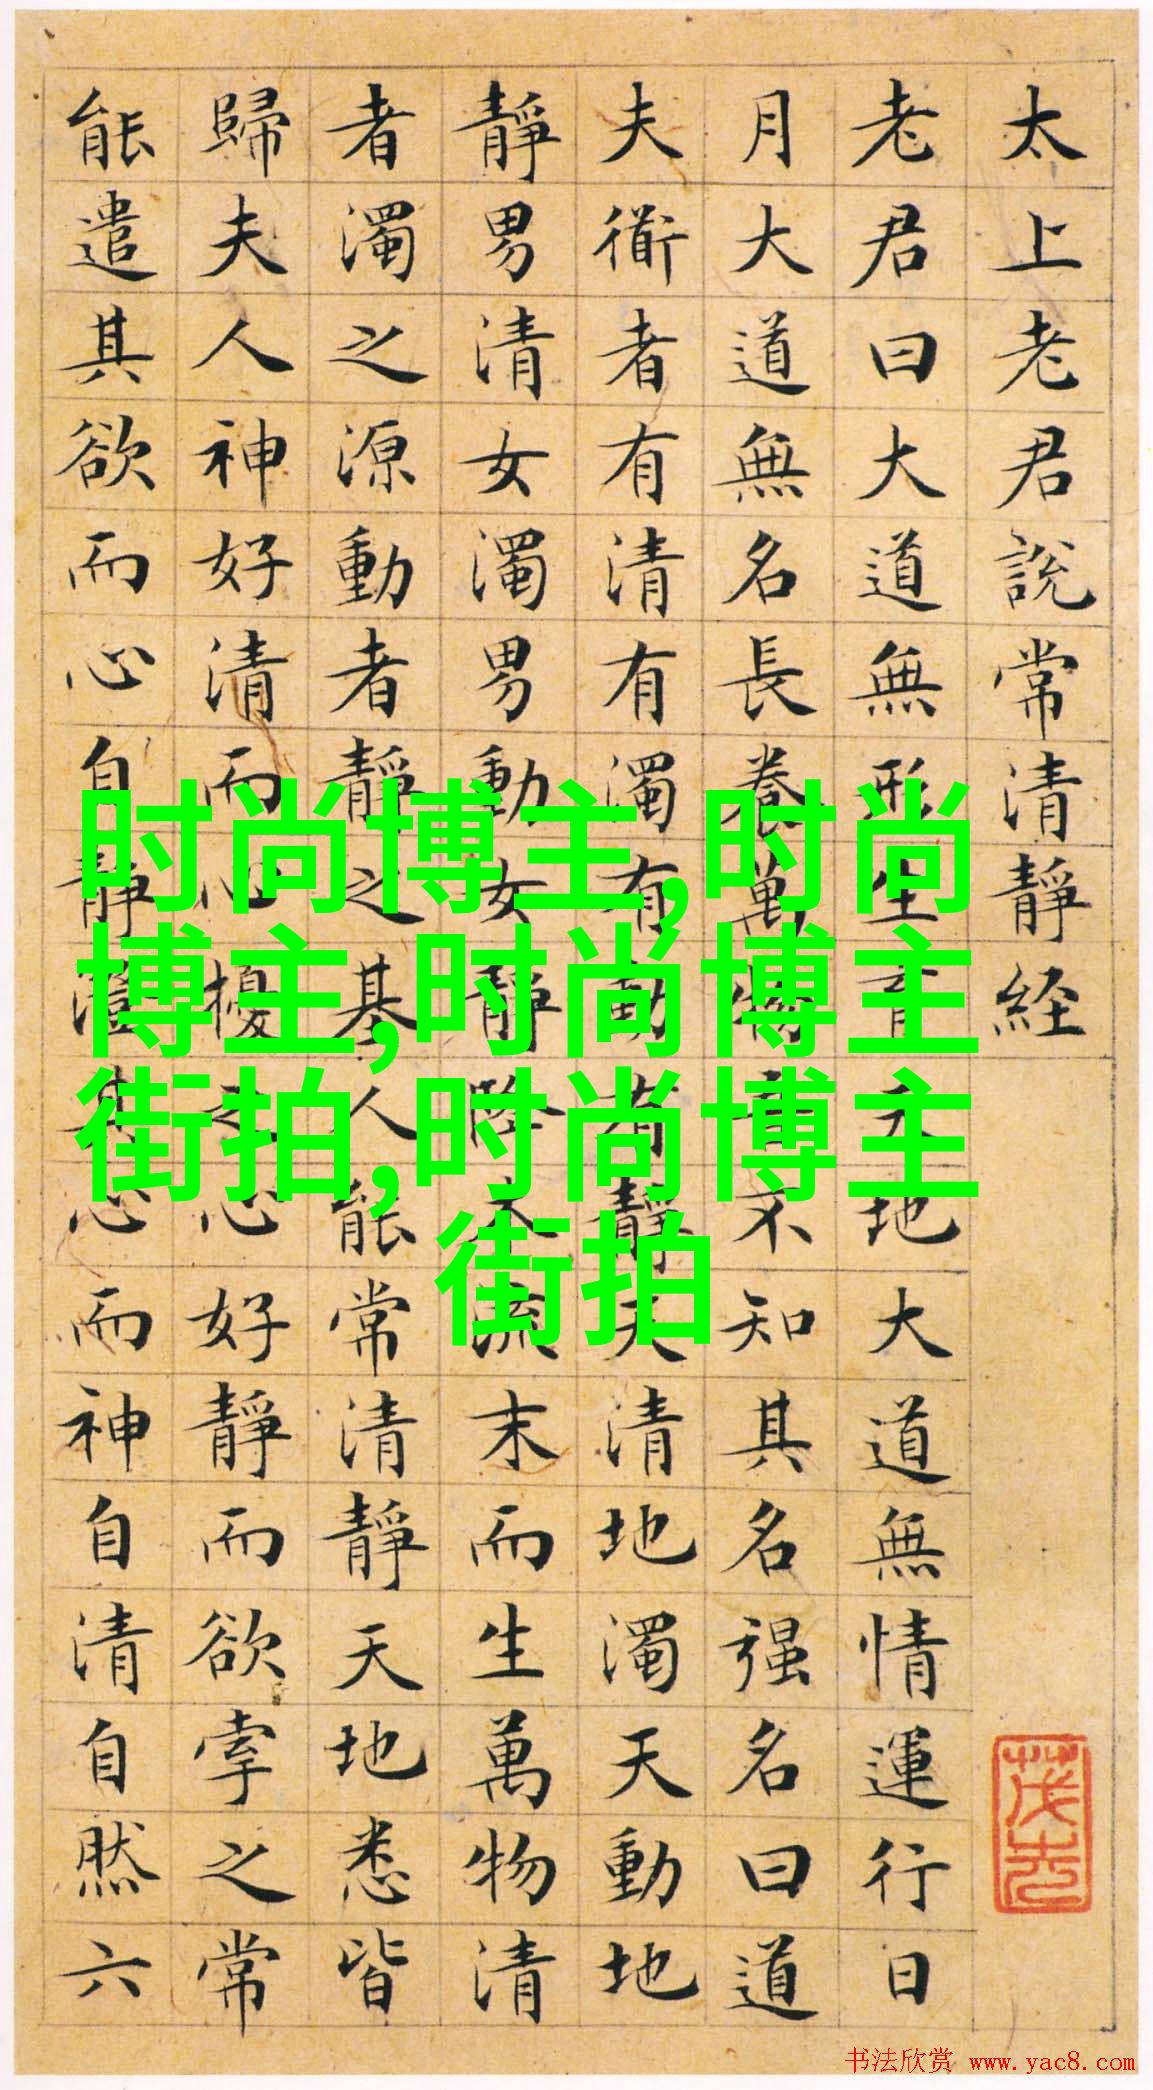 太上老君說常清靜経
老君曰大道無形生育天地大道無情運行日
月大道無名長養萬物吾不知其名强名曰道
夫衜者有清有濁有動有靜天清地濁天動地
靜男清女濁男動女靜降本流末而生萬物清
者濁之源動者靜之基人能常清靜天地悉皆
歸夫人神好清而心擾之心好靜而欲牽之常
能遣其欲而心自靜澄其心而神自清自然六
时尚博主,时尚
博主,时尚博主
街拍,时尚博主
街拍
书法欣赏 www.yac8.com